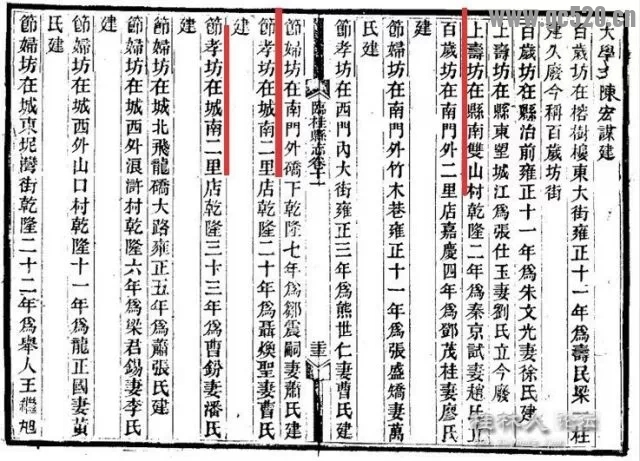 大學士陳宏謀建
百歲坊在榕樹樓東大街雍正十一年爲壽民梁一柱
建久廢今稱百歲坊街
百歲坊在縣治前雍正十一年爲朱文光妻徐氏建
上壽坊在縣東塱城江爲張仕玉妻劉氏立今廢
上壽坊在縣南雙山村乾隆二年爲秦京試妻趙氏立
百歲坊在南門外二里店嘉慶四年爲鄧茂桂妻廖氏
建
節婦坊在南門外竹木巷雍正十一年爲張盛矯妻萬
氏建
節孝坊在西門內大街雍正三年爲熊世仁妻曹氏建
臨桂縣志卷十一
節婦坊在南門外礄下乾隆七年爲鄒震嗣妻蕭氏建
節孝坊在城南二里店乾隆二十年爲聶煥聖妻曹氏
建
節孝坊在城南二里店乾隆三十三年爲曹鈖妻潘氏
建
節婦坊在城北飛龍礄大路雍正五年爲蕭張氏建
節婦坊在城西外浪滸村乾隆六年爲梁君錫妻李氏
節婦坊在城西外山口村乾隆十一年爲龍正國妻黃
氏建
節婦坊在城東坭灣街乾隆二十二年爲舉人王繼旭
桂林人论坛